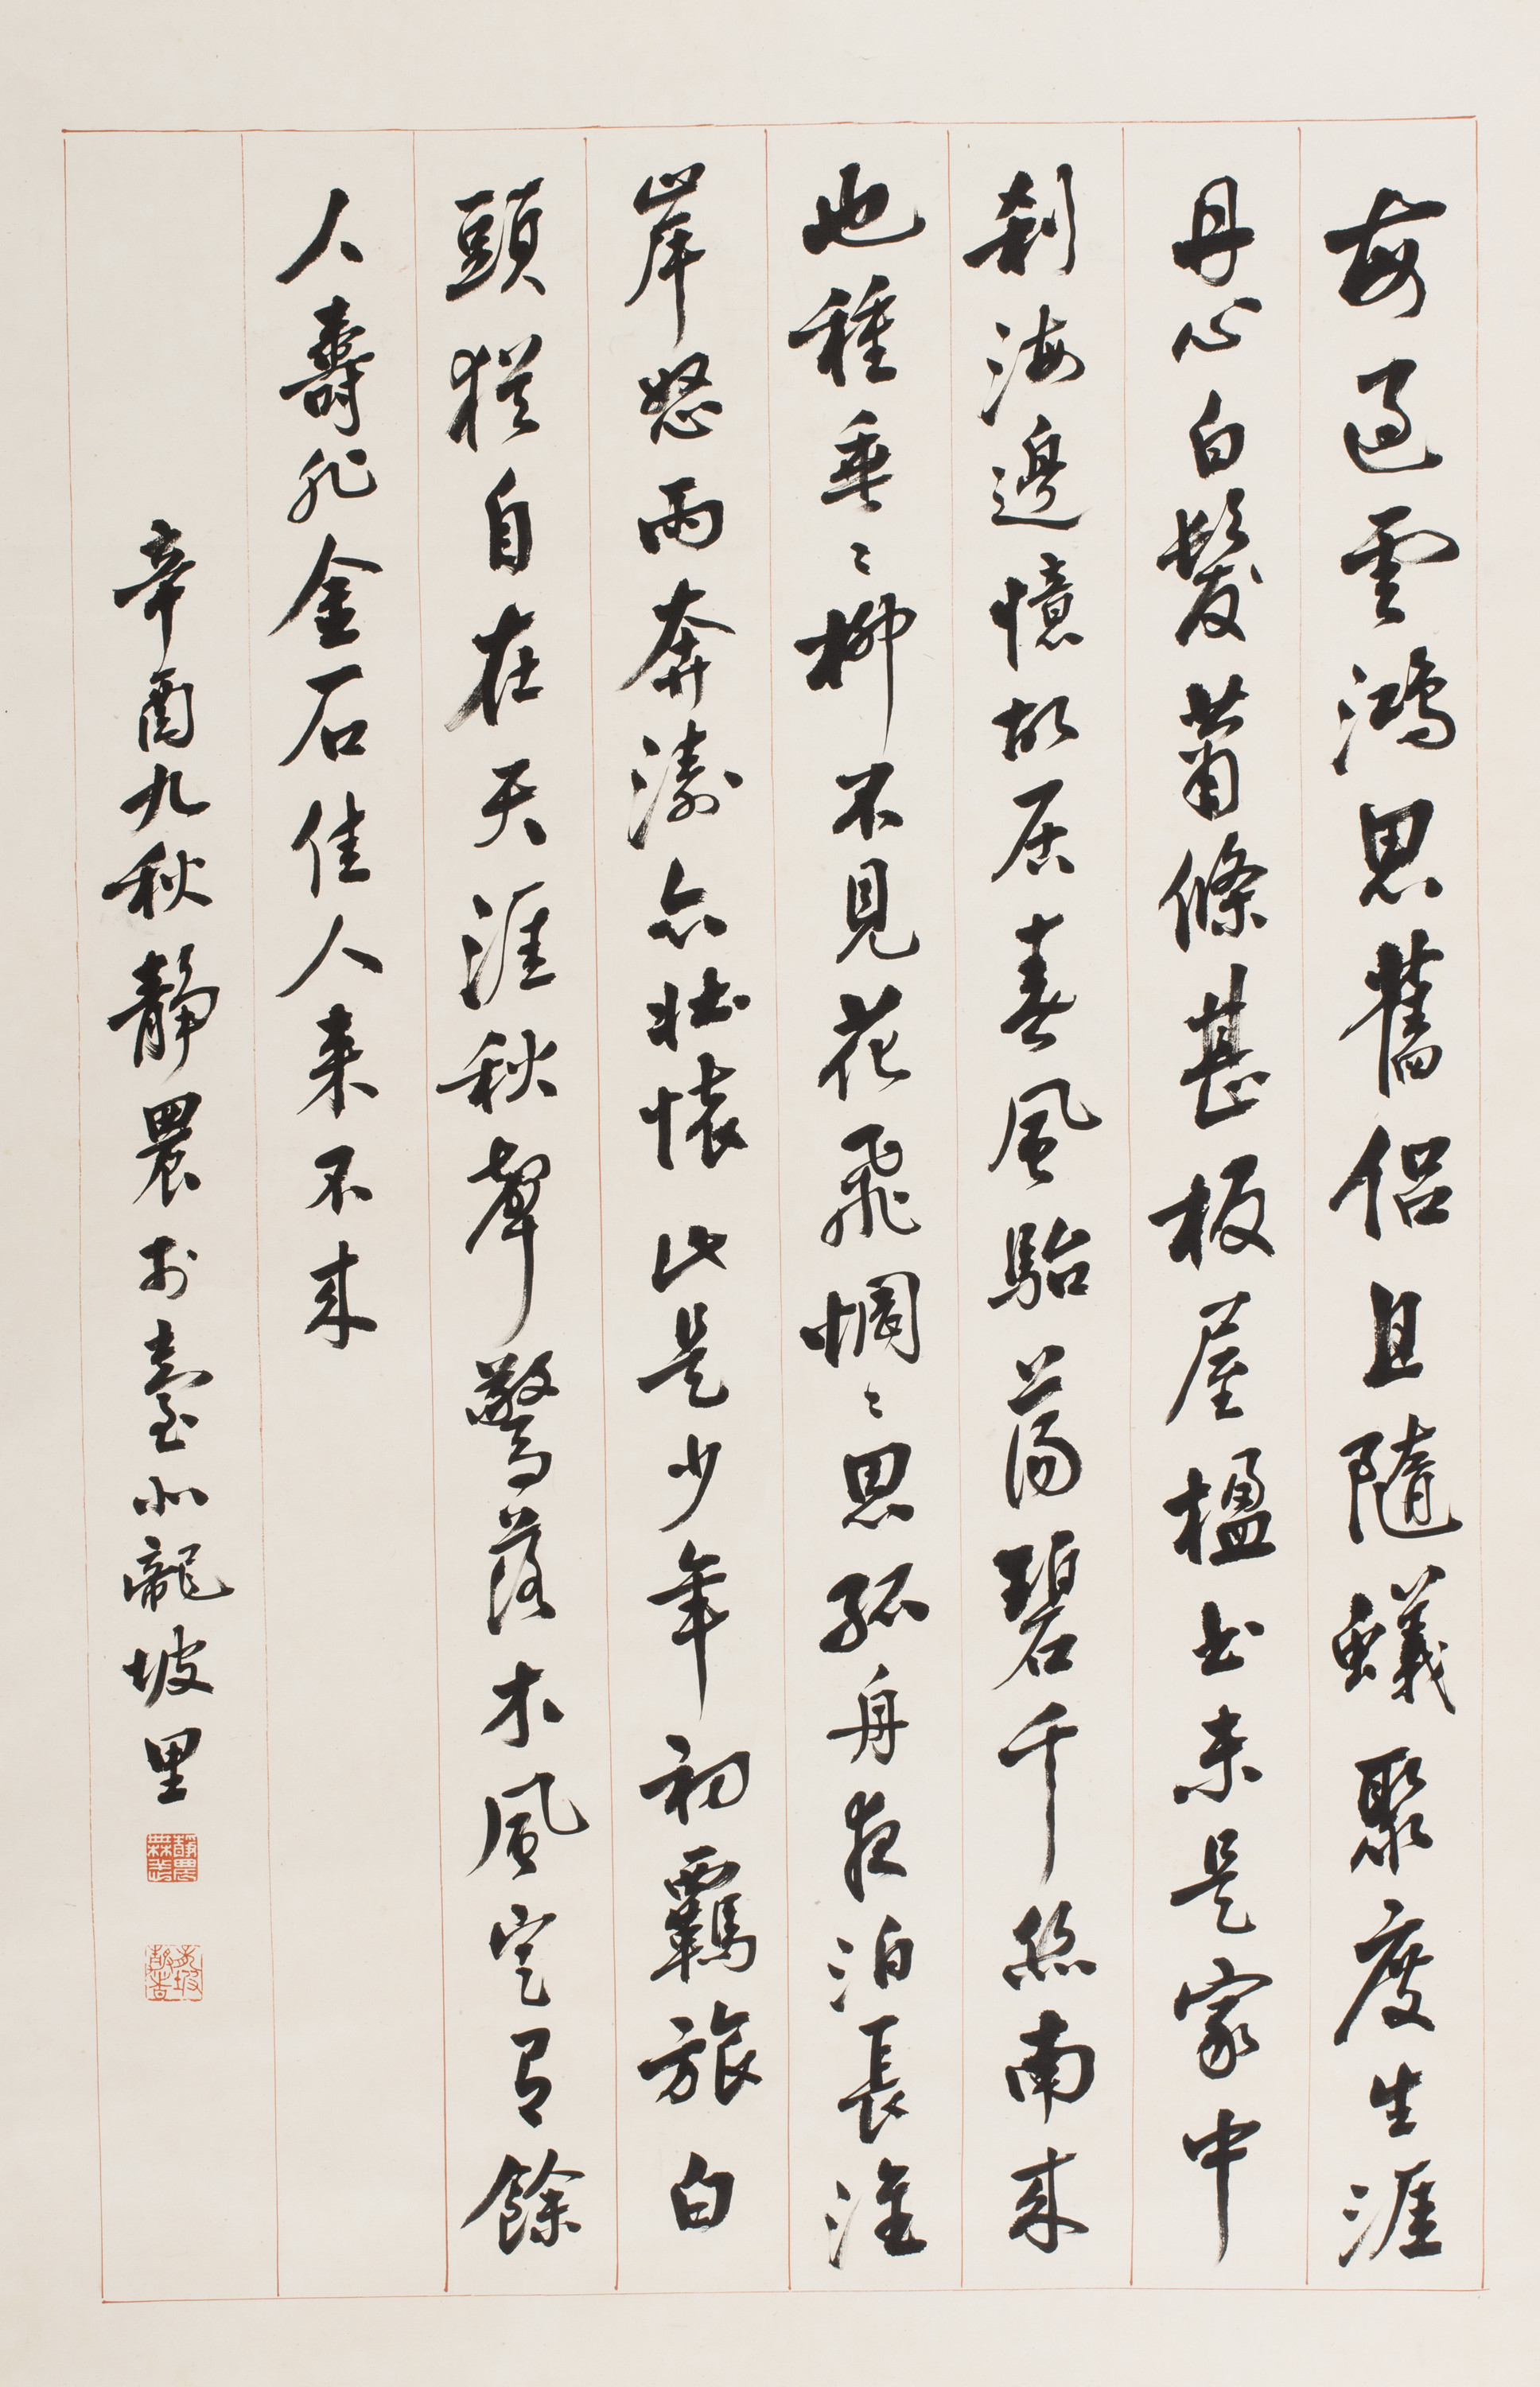 每過雲鴻思舊侶且隨蟻聚度生涯
丹心白髮蕭條甚板屋楹書未是家中
剎海邊憶故居春風駘蕩碧千絲南來
也種垂〻柳不見花飛惘〻思孤舟夜泊長淮
岸怒雨奔濤亦壯懷此是少年初羈旅白
頭猶自在天涯秋聲驚落木風定有餘
人壽非金石佳人来不来
辛酉九秋靜農於臺北龍坡里
靜農無恙